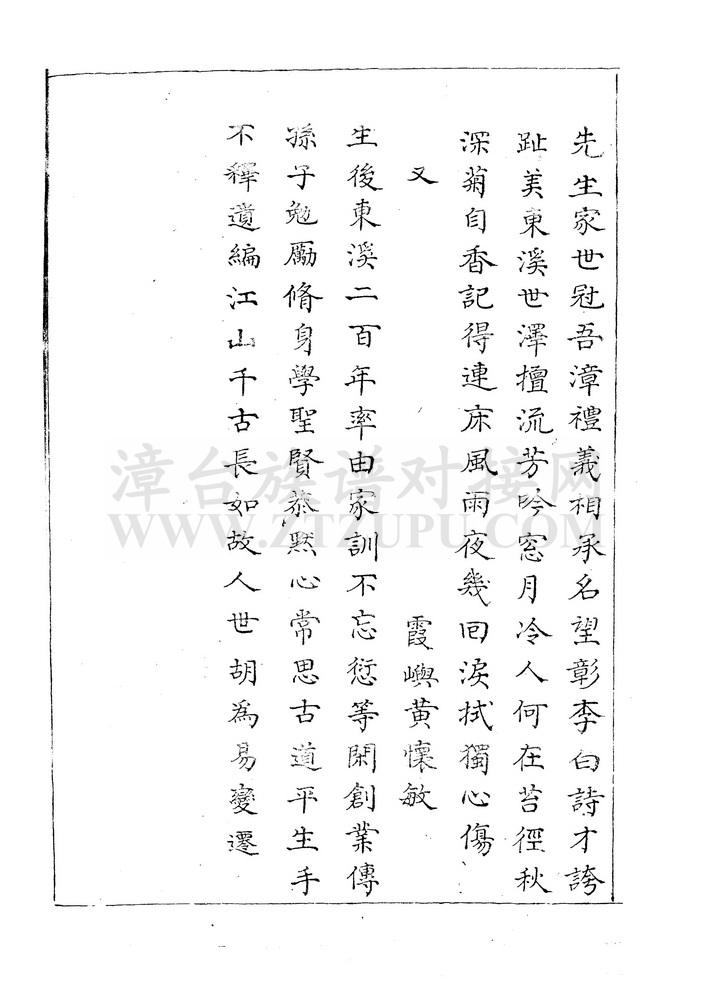 先生家世冠吾漳禮義相承名望彰李白詩才誇
趾美東溪世澤擅流芳吟窓月冷人何在苔徑秋
深菊自香記得連床風雨夜幾回淚拭獨心傷
又
霞嶼黃懷敏
生後東溪二百年率由家訓不忘愆等閑創業傳
孫子勉勵脩身學聖賢恭黙心常思古道平生手
不釋遺編江山千古長如故人世胡為易變遷
漳台族谱对接网
WWW.ZTZUPU.COM